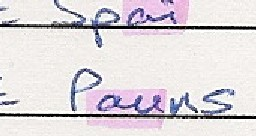 = Spai
= Pauns